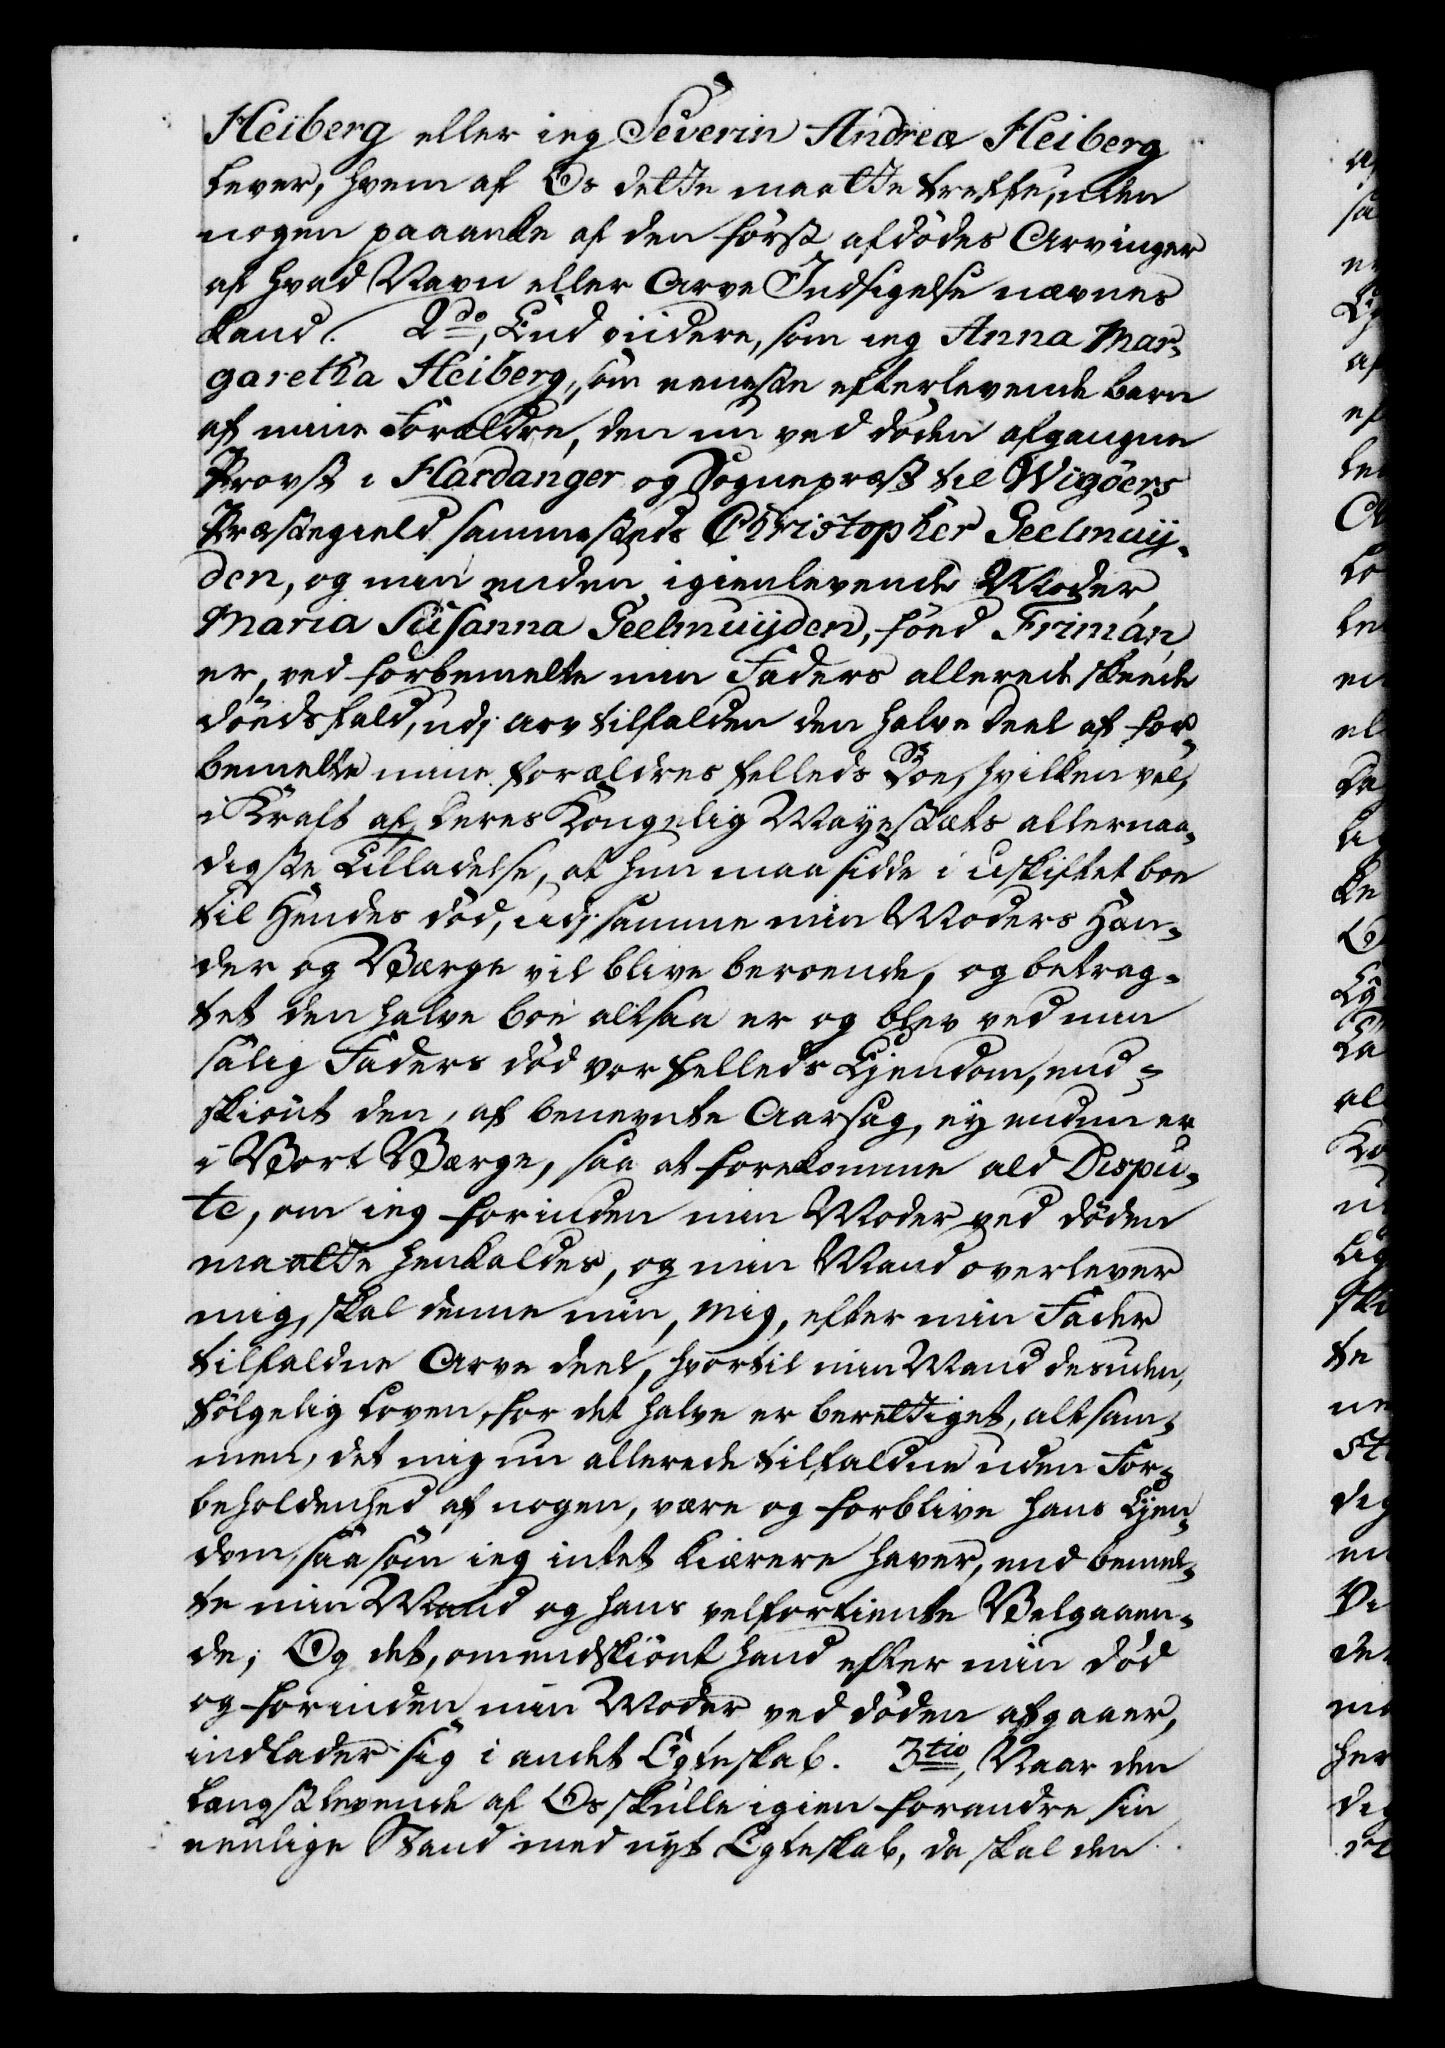 Heiberg eller ieg Severin Andreæ Heiberg
lever, hvem af Os dette maatte treffe, uden
nogen paaanke af den först afdödes Arvinger
af hvad Navn eller Arve Indsigelse nævnes
kand. 2do, End viidere, som ieg Anna Mar-
garetha Heiberg, som eeneste efterlevende barn
af mine Forældre, den nu ved döden afgangne
Provst i Hardanger og Sognepræst til Wigöers
Præstegield sammesteds Christopher Geelmuij-
den, og min endnu igienlevende Moder,
Maria Susanna Geelmuijden, föed Frimán,
er, ved forbemelte min Faders allerede skeede
dödsfald, udj arv tilfalden den halve Deel af for-
bemelte mine forældres felleds Boe, hvilken vel,
i Kraft af Deres Kongelig Mayestæts allernaa-
digste Tilladelse, at hun maa sidde i uskiftet boe
til Hendes död, udj samme min Moders Hæn-
der og Værge vil blive beroende, og betrag-
tet den halve boe altsaa er og blev ved min
salig Faders död vor felleds Ejendom, end-
skiönt den, af benevnte Aarsag, ey endnu er
i Vort Værge, saa at forekomme ald Dispu-
te, om ieg forinden min Moder ved döden
maatte henkaldes, og min Mand overlever
mig, skal denne min, mig, efter min Fader
tilfaldne Arve deel, hvortil min Mand desuden,
fölgelig Loven, for det halve er berettiget, altsam-
men, det mig nu allerede tilfaldne uden For-
beholdenhed af nogen, være og forblive hans Ejen-
dom, saasom ieg intet kiærere haver, end bemel-
te min Mand og hans velfortiente Velgaaen-
de; Og det, omendskiönt hand efter min död
og forinden min Moder ved döden afgaaer,
indlader sig i andet Egteskab. 3tio, Naar den
Længstlevende af Os skulle igien forandre sin
eenlige Stand med nyt Egteskab, da skal den